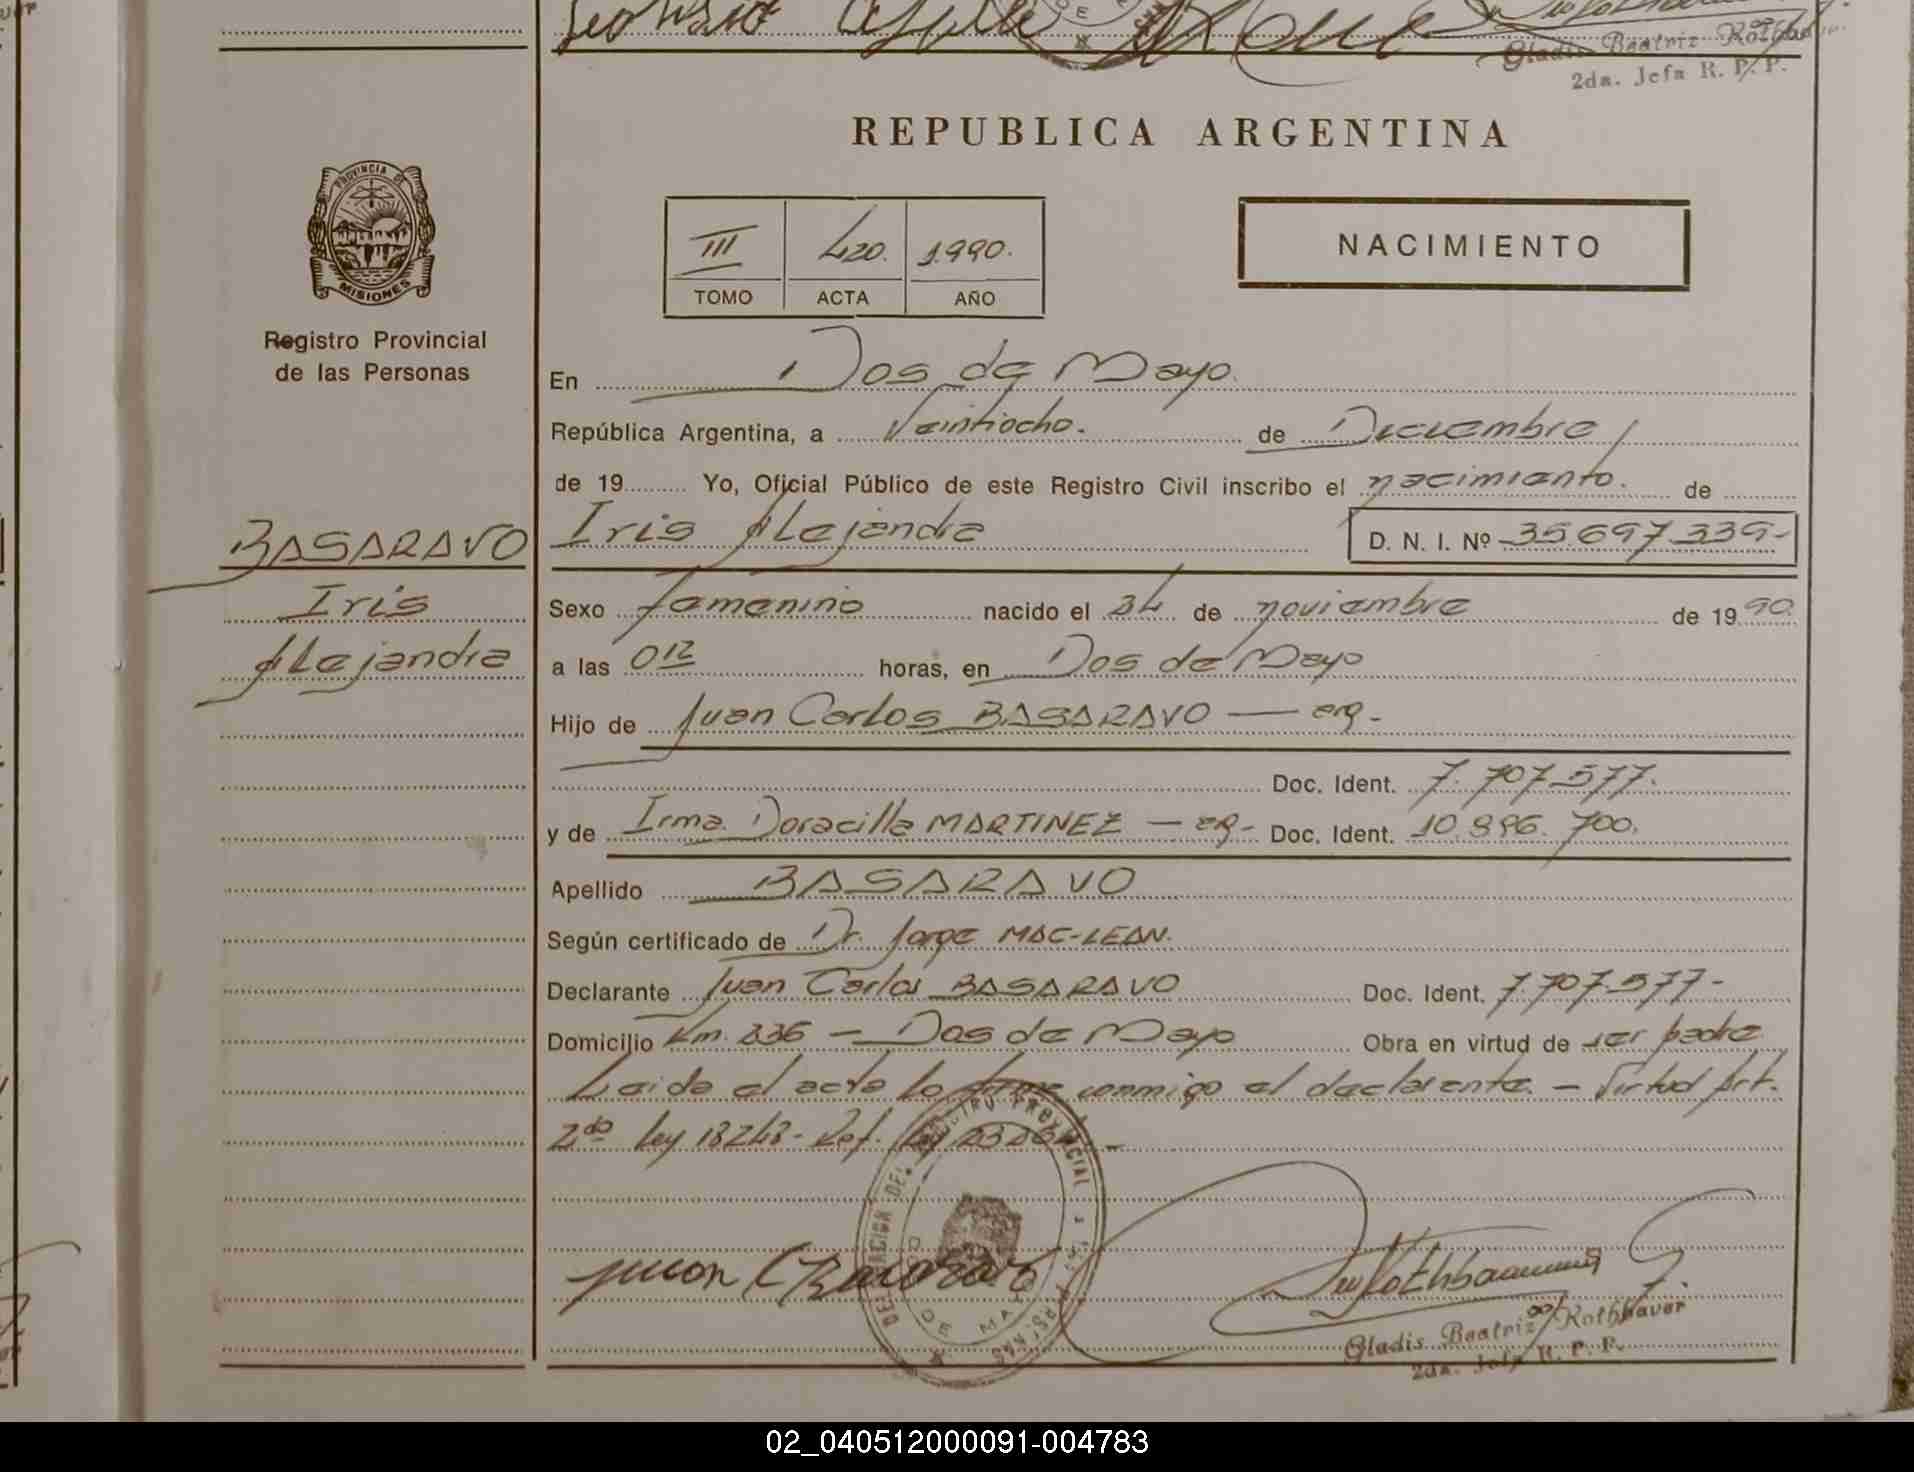 Gladis Beatriz Rothbauer
2da. Jefa R. P. P.
REPUBLICA ARGENTINA
PROVINCIA DE
MISIONES
Registro Provincial
de las Personas
III 420. 1.990.
TOMO ACTA AÑO
NACIMIENTO
En Dos de Mayo.
República Argentina, a Veintiocho. de Diciembre
de 19 Yo, Oficial Público de este Registro Civil inscribo el nacimiento. de
BASARAVO Iris Alejandra D. N. I. Nº 35.697.339-
Iris Sexo femenino nacido el 24 de noviembre de 1990.
Alejandra a las horas, en Dos de Mayo
Hijo de Juan Carlos BASARAVO — arg-
Doc. Ident. 7.707.577.
y de Irma Doracilla MARTINEZ — arg- Doc. Ident. 10.896.700.
Apellido BASARAVO
Según certificado de Dr. Jorge MAC-LEAN.
Declarante Juan Carlos BASARAVO Doc. Ident. 7.707.577-
Domicilio Km. 236 - Dos de Mayo Obra en virtud de ser padre
Leida el acta la firma conmigo el declarante. - Virtud Art.
2do ley 18248- Ref. ley
DELEGACION DEL REGISTRO PROVINCIAL DE LAS PERSONAS
DOS DE MAYO
Gladis Beatriz Rothbauer
2da. Jefa R. P. P.
02_040512000091-004783